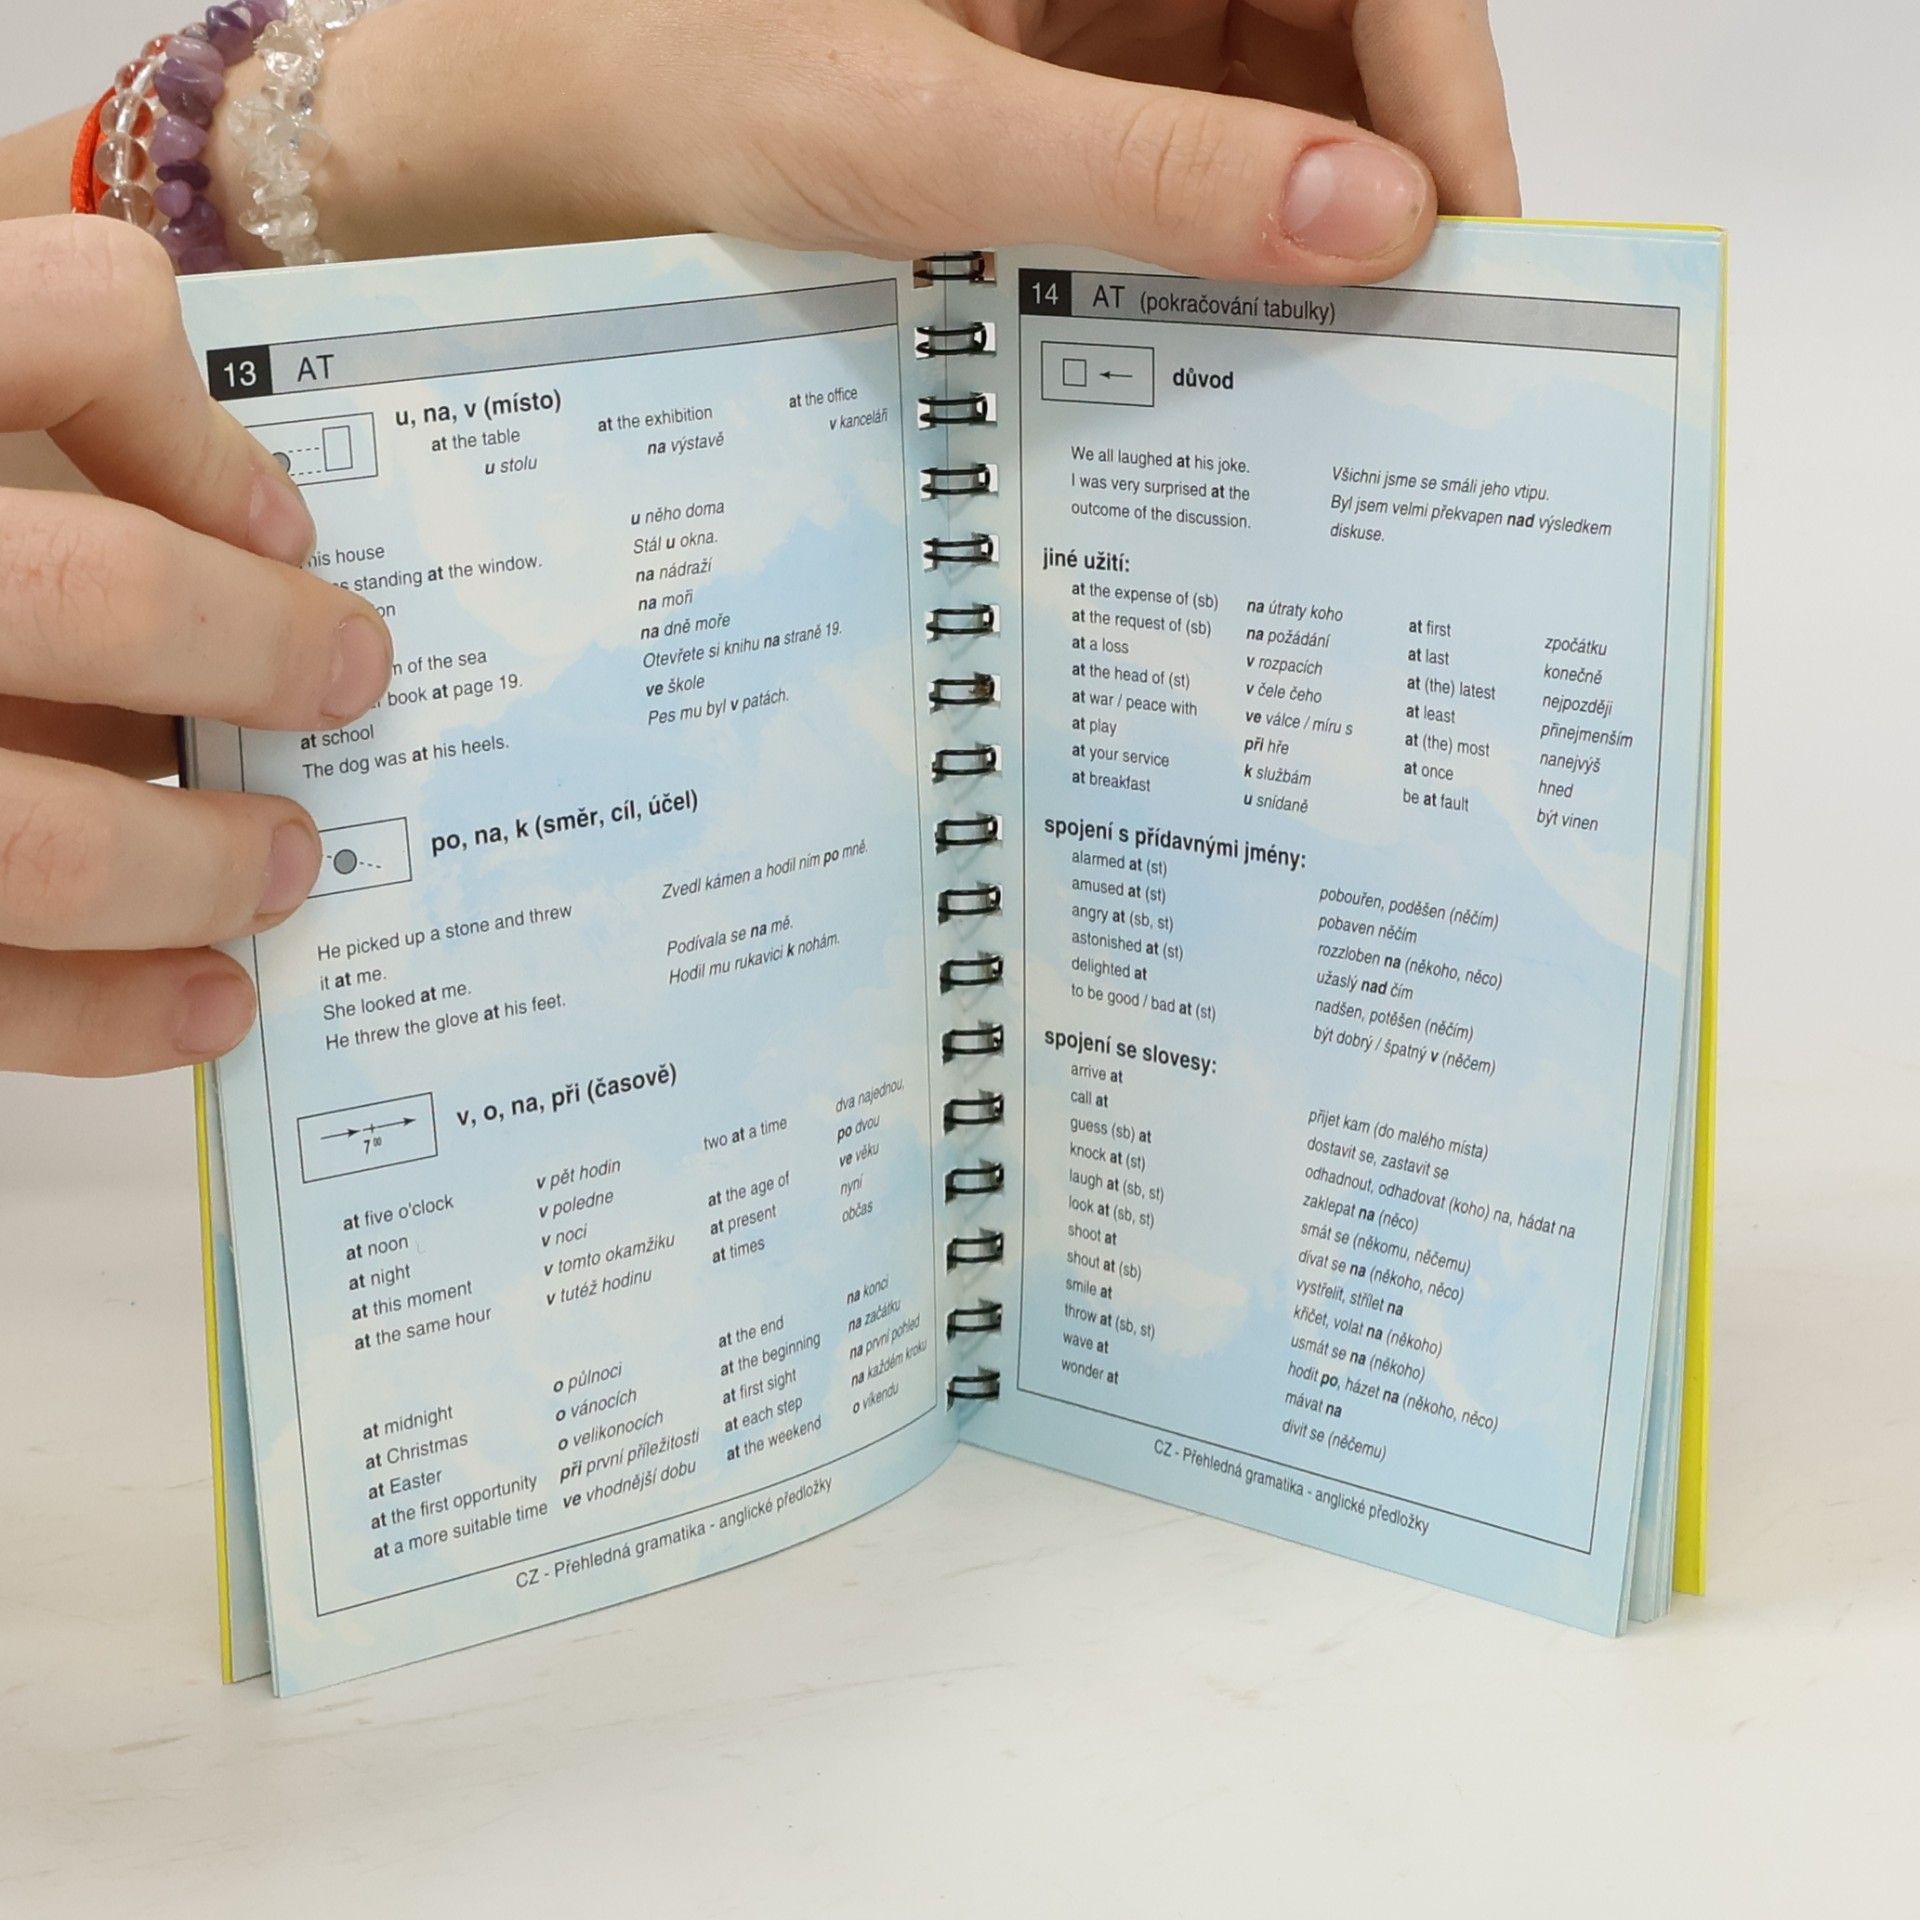 13 AT
u, na, v (místo)
at the table
u stolu
at the exhibition
na výstavě
at the office
v kanceláři
his house
u něho doma
standing at the window.
Stál u okna.
na nádraží
na moři
of the sea
na dně moře
book at page 19.
Otevřete si knihu na straně 19.
at school
ve škole
The dog was at his heels.
Pes mu byl v patách.
po, na, k (směr, cíl, účel)
He picked up a stone and threw
it at me.
Zvedl kámen a hodil ním po mně.
She looked at me.
Podívala se na mě.
He threw the glove at his feet.
Hodil mu rukavici k nohám.
7 00
v, o, na, při (časově)
at five o'clock
v pět hodin
at noon
v poledne
at night
v noci
at this moment
v tomto okamžiku
at the same hour
v tutéž hodinu
two at a time
dva najednou,
po dvou
at the age of
ve věku
at present
nyní
at times
občas
at midnight
o půlnoci
at Christmas
o vánocích
at Easter
o velikonocích
at the first opportunity
při první příležitosti
at a more suitable time
ve vhodnější dobu
at the end
na konci
at the beginning
na začátku
at first sight
na první pohled
at each step
na každém kroku
at the weekend
o víkendu
CZ - Přehledná gramatika - anglické předložky
14 AT (pokračování tabulky)
důvod
We all laughed at his joke.
Všichni jsme se smáli jeho vtipu.
I was very surprised at the
outcome of the discussion.
Byl jsem velmi překvapen nad výsledkem
diskuse.
jiné užití:
at the expense of (sb)
na útraty koho
at the request of (sb)
na požádání
at a loss
v rozpacích
at the head of (st)
v čele čeho
at war / peace with
ve válce / míru s
at play
při hře
at your service
k službám
at breakfast
u snídaně
at first
zpočátku
at last
konečně
at (the) latest
nejpozději
at least
přinejmenším
at (the) most
nanejvýš
at once
hned
be at fault
být vinen
spojení s přídavnými jmény:
alarmed at (st)
pobouřen, poděšen (něčím)
amused at (st)
pobaven něčím
angry at (sb, st)
rozzloben na (někoho, něco)
astonished at (st)
užaslý nad čím
delighted at
nadšen, potěšen (něčím)
to be good / bad at (st)
být dobrý / špatný v (něčem)
spojení se slovesy:
arrive at
přijet kam (do malého místa)
call at
dostavit se, zastavit se
guess (sb) at
odhadnout, odhadovat (koho) na, hádat na
knock at (st)
zaklepat na (něco)
laugh at (sb, st)
smát se (někomu, něčemu)
look at (sb, st)
dívat se na (někoho, něco)
shoot at
vystřelit, střílet na
shout at (sb)
křičet, volat na (někoho)
smile at
usmát se na (někoho)
throw at (sb, st)
hodit po, házet na (někoho, něco)
wave at
mávat na
wonder at
divit se (něčemu)
CZ - Přehledná gramatika - anglické předložky